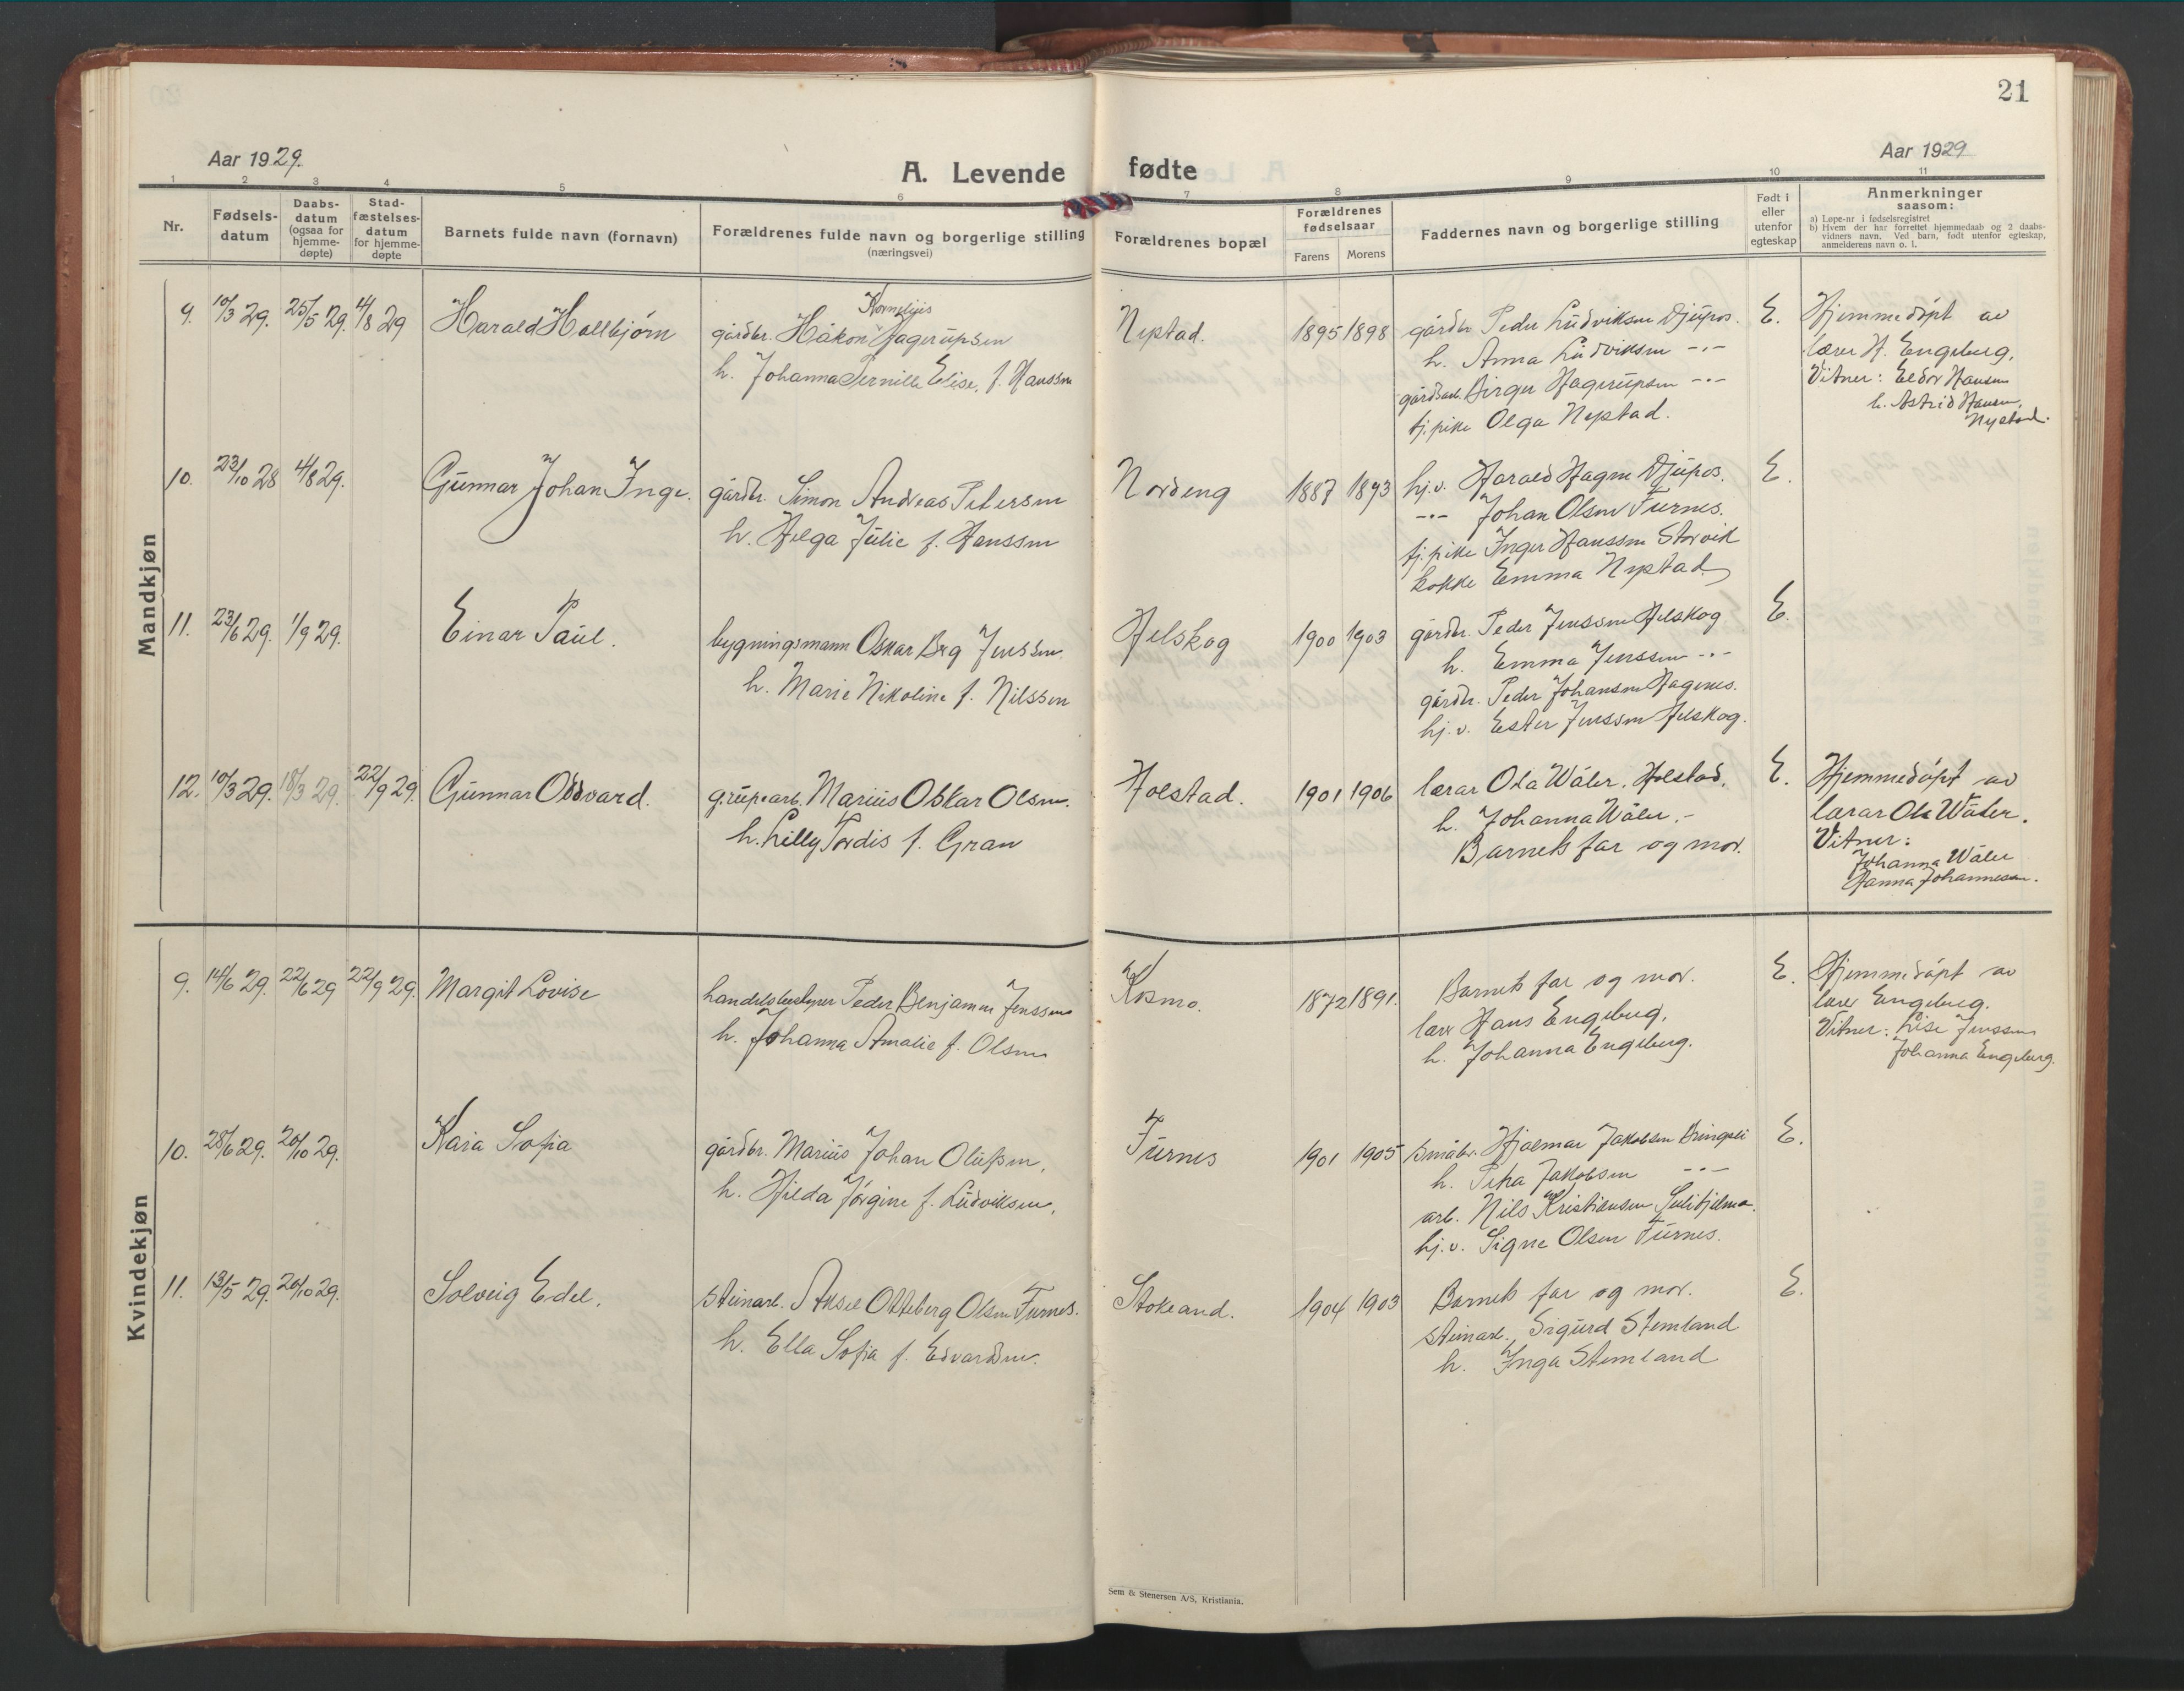 21
Aar 1929.
A. Levende fødte
Aar 1929
1 2 3 4 5 6 7 8 9 10 11
Nr.
Fødsels-
datum
Daabs-
datum
(ogsaa for
hjemme-
døpte)
Stad-
fæstelses-
datum
for hjemme-
døpte
Barnets fulde navn (fornavn)
Forældrenes fulde navn og borgerlige stilling
(næringsvei)
Forældrenes bopæl
Forældrenes
fødselsaar
Farens Morens
Faddernes navn og borgerlige stilling
Født i
eller
utenfor
egteskap
Anmerkninger
saasom:
a) Løpe-nr i fødselsregistret
b) Hvem der har forrettet hjemmedaab og 2 daabs-
vidners navn. Ved barn, født utenfor egteskap,
anmelderens navn o. l.
Mandkjøn
9. 10/3 29. 25/5 29. 4/8 29 Harald Hallbjørn
Kornelius
gårdbr. Håkon Hagerupsen
h. Johanna Pernille Elise, f. Hanssen
Nystad. 1895 1898
gårdbr Peder Ludviksen Djupos.
h. Anna Ludviksen -"-
gårdsarb. Birger Hagerupsen -"-
tj.pike Olga Nystad.
E.
Hjemmedøpt av
lærer H. Engeberg.
Vitner: Eldor Hansen
h. Astrid Hansen,
Nystad.
10. 23/10 28 4/8 29. Gunnar Johan Inge.
gårdbr. Simon Andreas Petersen
h. Helga Julie f. Hanssen
Nordeng 1887 1893
hj.v. Harald Hagen Djupos.
-"- Johan Olsen Furnes.
tj.pike Inger Hanssen Storvik
kokke Emma Nystad
E.
11. 23/6 29. 1/9 29. Einar Paul.
bygningsmann Oskar Berg Jenssen
h. Marie Nikoline f. Nilssen
Helskog 1900 1903
gårdbr. Peder Jenssen Helskog
h. Emma Jenssen -"-
gårdbr. Peder Johansen Hagenes.
hj.v. Ester Jenssen Helskog.
E.
12. 10/3 29. 18/3 29. 22/9 29. Gunnar Oddvard.
grubearb. Marius Oskar Olsen.
h. Lilly Tordis f. Gran
Holstad. 1901 1906
lærar Ola Wåler, Holstad.
h. Johanna Wåler. -
Barnets far og mor.
E.
Hjemmedøpt av
lærar Ola Wåler.
Vitner:
Johanna Wåler
Hanna Johannessen.
Kvindekjøn
9. 14/6 29. 22/6 29 22/9 29. Margit Lovise
handelsbestyrer Peder Benjamin Jenssen
h. Johanna Amalie f. Olsen
Kosmo. 1872 1891.
Barnets far og mor.
lærer Hans Engeberg.
h. Johanna Engeberg.
E.
Hjemmedøpt av
lærer Engeberg.
Vitner: Lise Jenssen
Johanna Engeberg.
10. 28/6 29. 20/10 29. Kaia Sofia
gårdbr. Marius Johan Olufsen,
h. Hilda Jørgine f. Ludviksen,
Furnes 1901 1905
småbr. Hjalmar Jakobsen Bringsli
h. Petra Jakobsen -"-
arb. Nils Kristiansen Sulitjelma.
hj.v. Signe Olsen Furnes.
E.
11. 13/5 29. 20/10 29. Solveig Edel.
steinarb. Aksel Otteberg Olsen Furnes.
h. Ella Sofia f. Edvardsen.
Stokland. 1904 1903
Barnets far og mor.
steinarb. Sigurd Stemland
h. Inga Stemland
E.
Sem & Stenersen A/S, Kristiania.